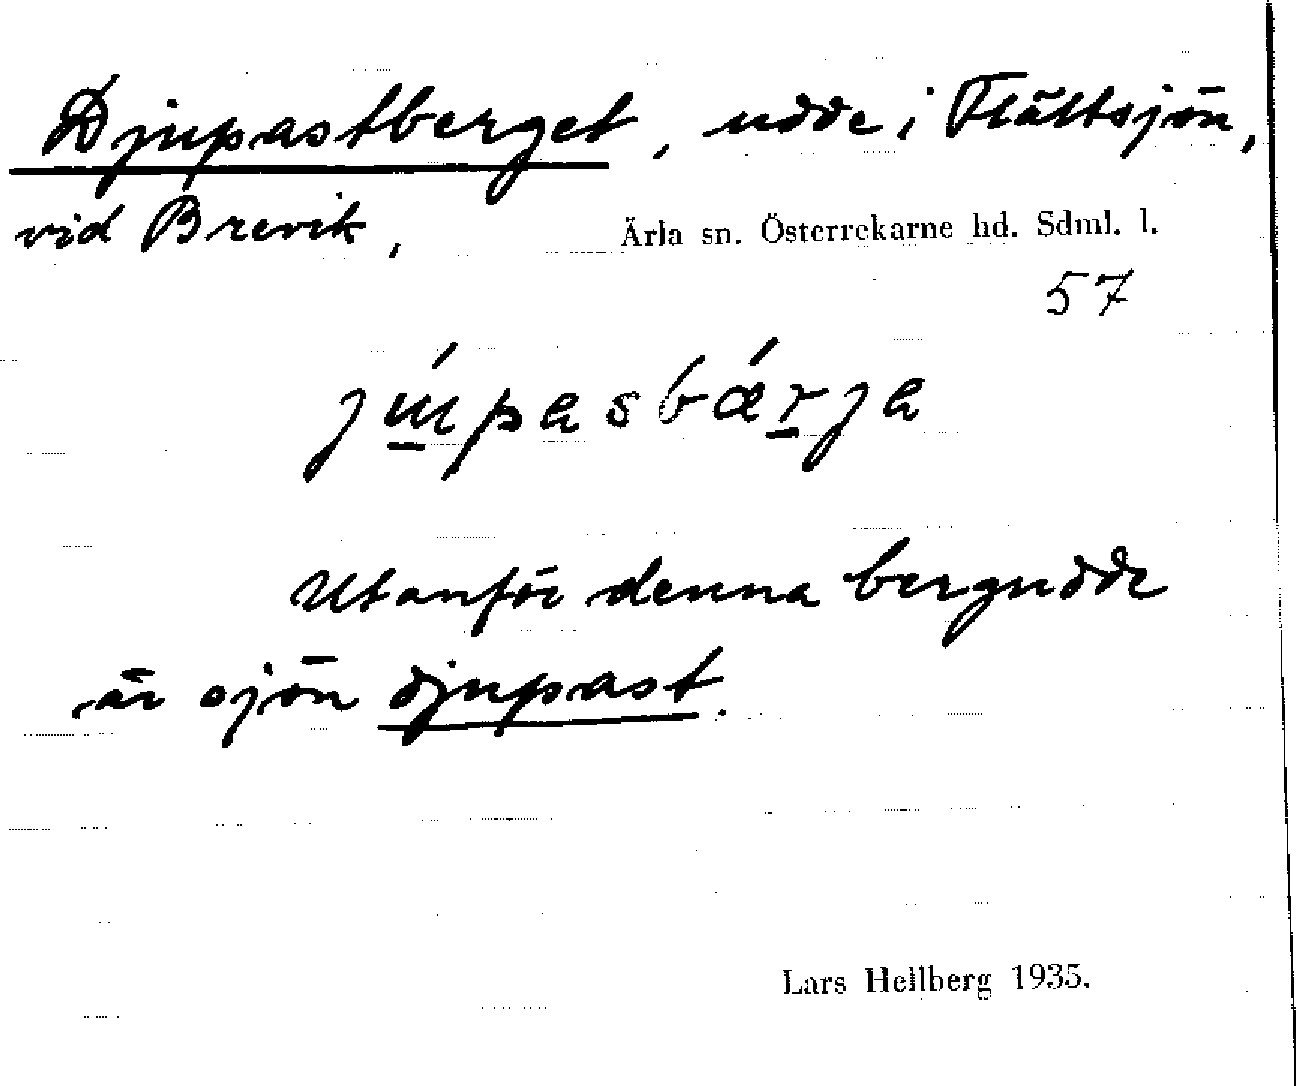 Djupastberget, udde i Flättsjön,
vid Brevik, Ärla sn. Österrekarne hd. Sdml. l.
57
jú̱pasbǽṟja
Utanför denna bergudde
är sjön djupast.
Lars Hellberg 1935.